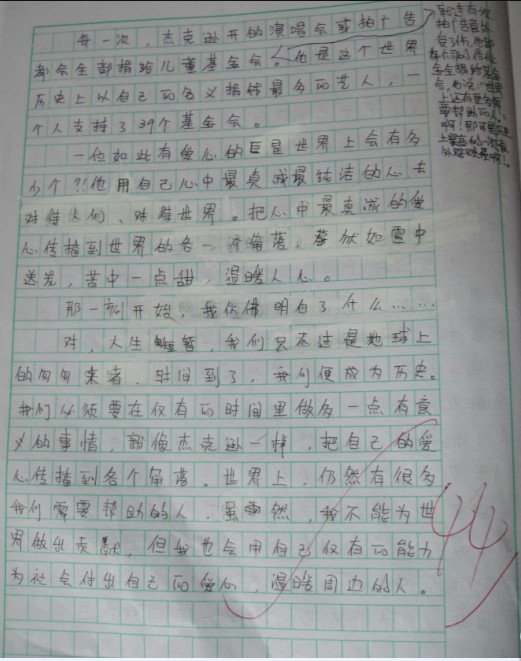 每一次，杰克逊开的演唱会或拍广告
都会全部捐给儿童基金会。他是这个世界
历史上以自己的名义捐钱最多的艺人，一
个人支持了39个基金会。
一位如此有爱心的巨星世界上会有多
少个？！他用自己心中最真诚最纯洁的心去
对待人们、对待世界。把心中最真诚的爱
心传播到世界的各个角落。犹如雪中
送炭，苦中一点甜，温暖人心。
那一刻开始，我仿佛明白了什么……
对，人生短暂，我们只不过是地球上
的匆匆来者，时间到了，我们便成为历史。
我们必须要在仅有的时间里做多一点有意
义的事情，就像杰克逊一样，把自己的爱
心传播到各个角落。世界上，仍然有很多
我们需要帮助的人，虽然，我不能为世
界做出贡献，但我也会用自己仅有的能力
为社会付出自己的爱心，温暖周边的人。
44